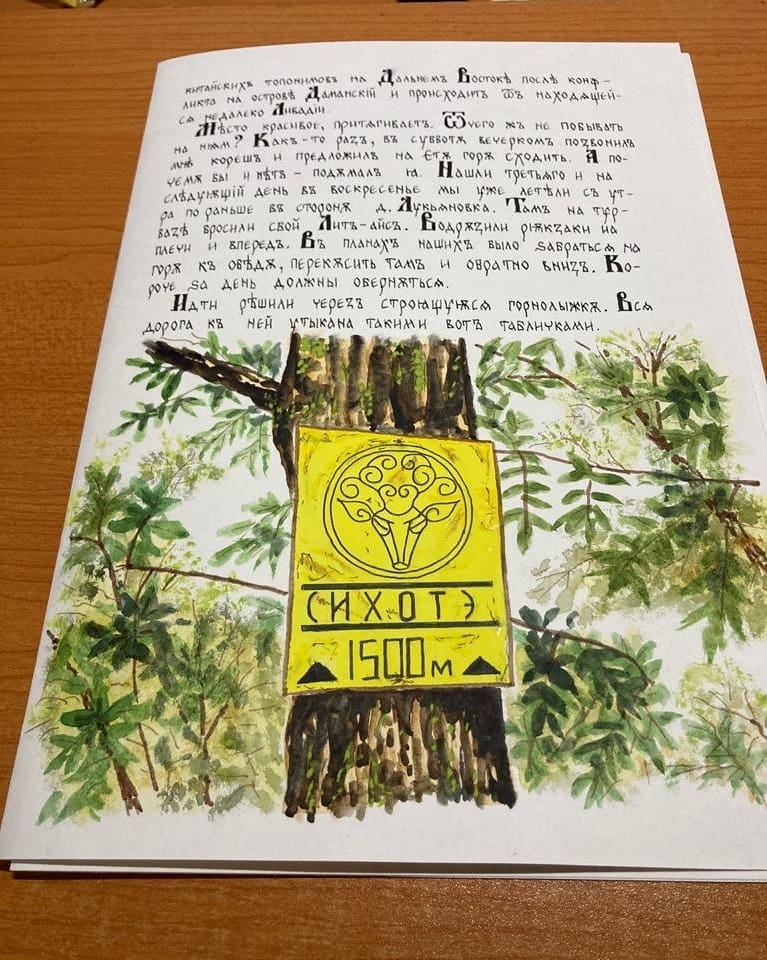 китайскихъ топонимовъ на Дальнемъ Востокѣ послѣ конф-
ликта на островѣ Даманскій и происходитъ ѿъ находѧщей-
сѧ недалеко Ливадіи.
Мѣсто красивое, притѧгиваетъ. Ѿчего жъ не побывать
на нѭм? Какъ-то разъ, въ субботꙋ вечеркомъ позвонилъ
мнѣ корешъ и предложилъ на єтꙋ горꙋ сходить. А по-
чемꙋ бы и нѣтъ - подꙋмалъ ꙗ. Нашли третьѧго и на
слѣдꙋющій день въ воскресенье мы уже летѣли съ ут-
ра по раньше въ сторонꙋ д. Лукьѧновка. Тамъ на тур-
базѣ бросили свой Литъ-айсъ. Водрꙋзили рꙋкзаки на
плечи и впередъ. Въ планахъ нашихъ было ѕабратьсѧ на
горꙋ къ обѣдꙋ, перекꙋсить тамъ и обратно внизъ. Ко-
роче ѕа день должны обернꙋтьсѧ.
Идти рѣшили черезъ строющуюсѧ горнолыжкꙋ. Всѧ
дорога къ ней утыкана такими вотъ табличками.
СИХОТЭ
1500м